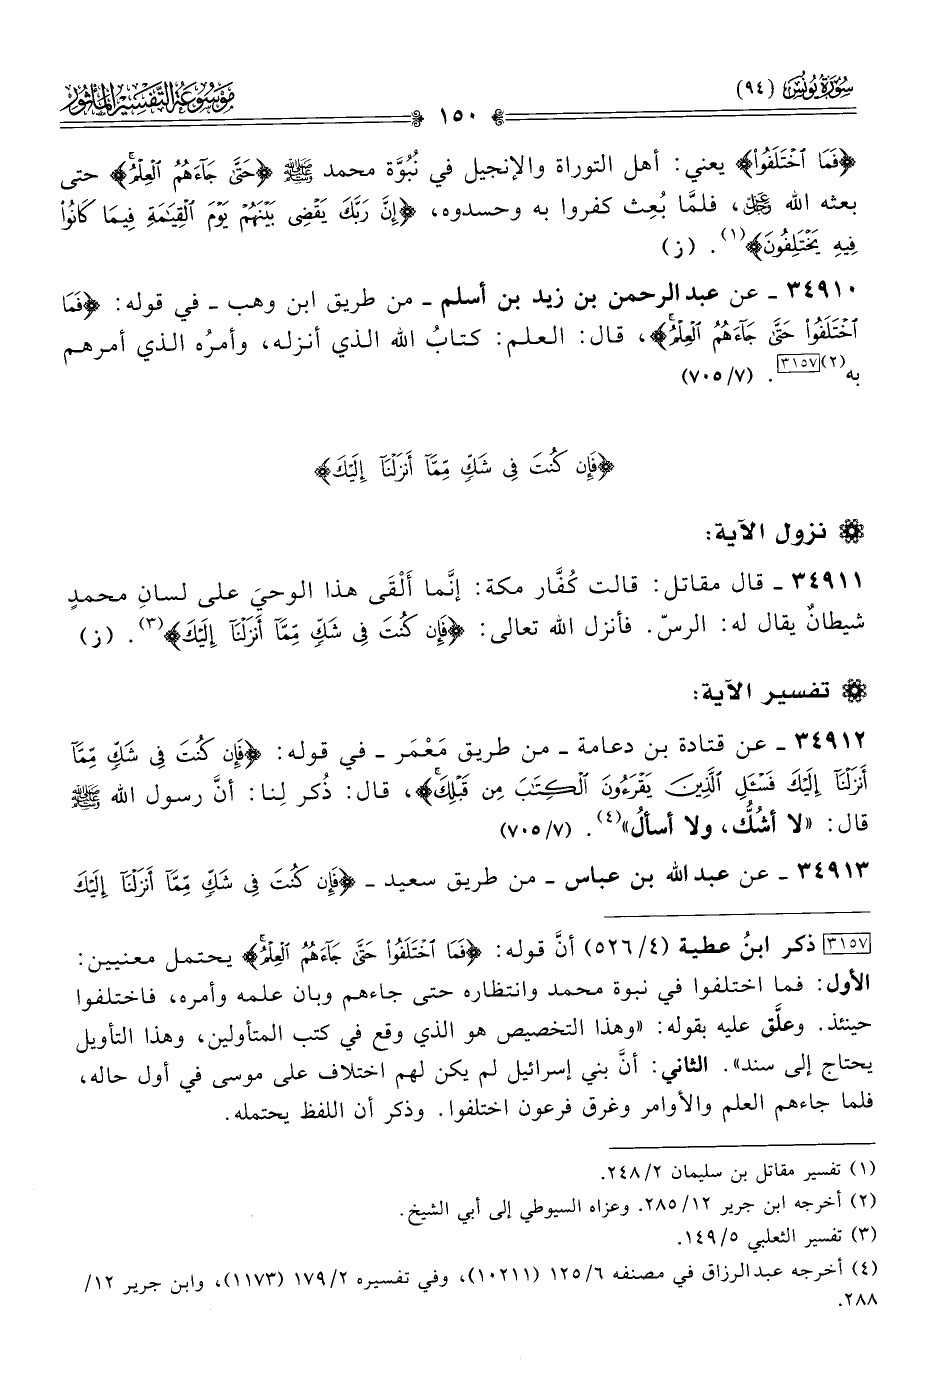 سُورَةُ يُونُسَ (٩٤)
١٥٠
مَوْسُوعَةُ التَّفْسِيرِ المَأْثُورِ
﴿فَمَا اخْتَلَفُوا﴾ يعني: أهل التوراة والإنجيل في نُبُوَّة محمد ﷺ ﴿حَتَّىٰ جَآءَهُمُ الْعِلْمُ﴾ حتى
بعثه الله ﷿، فلمَّا بُعِث كفروا به وحسدوه، ﴿إِنَّ رَبَّكَ يَقْضِى بَيْنَهُمْ يَوْمَ الْقِيَٰمَةِ فِيمَا كَانُوا
فِيهِ يَخْتَلِفُونَ﴾(١). (ز)
٣٤٩١٠ ـ عن عبدالرحمن بن زيد بن أسلم ـ من طريق ابن وهب ـ في قوله: ﴿فَمَا
اخْتَلَفُوا حَتَّىٰ جَآءَهُمُ الْعِلْمُ﴾، قال: العلم: كتابُ الله الذي أنزله، وأمرُه الذي أمرهم
به(٢)[٣١٥٧]. (٧/ ٧٠٥)
﴿فَإِن كُنتَ فِى شَكٍّ مِّمَّآ أَنزَلْنَآ إِلَيْكَ﴾
نزول الآية:
٣٤٩١١ ـ قال مقاتل: قالت كُفَّار مكة: إنَّما أَلْقَى هذا الوحيَ على لسانِ محمدٍ
شيطانٌ يقال له: الرسّ. فأنزل الله تعالى: ﴿فَإِن كُنتَ فِى شَكٍّ مِّمَّآ أَنزَلْنَآ إِلَيْكَ﴾(٣). (ز)
تفسير الآية:
٣٤٩١٢ ـ عن قتادة بن دعامة ـ من طريق مَعْمَر ـ في قوله: ﴿فَإِن كُنتَ فِى شَكٍّ مِّمَّآ
أَنزَلْنَآ إِلَيْكَ فَسْـَٔلِ الَّذِينَ يَقْرَءُونَ الْكِتَٰبَ مِن قَبْلِكَ﴾، قال: ذُكر لنا: أنَّ رسول الله ﷺ
قال: «لا أشُكُّ، ولا أسألُ»(٤). (٧/ ٧٠٥)
٣٤٩١٣ ـ عن عبدالله بن عباس ـ من طريق سعيد ـ ﴿فَإِن كُنتَ فِى شَكٍّ مِّمَّآ أَنزَلْنَآ إِلَيْكَ
[٣١٥٧] ذكر ابنُ عطية (٤/ ٥٢٦) أنَّ قوله: ﴿فَمَا اخْتَلَفُوا حَتَّىٰ جَآءَهُمُ الْعِلْمُ﴾ يحتمل معنيين:
الأول: فما اختلفوا في نبوة محمد وانتظاره حتى جاءهم وبان علمه وأمره، فاختلفوا
حينئذ. وعلَّق عليه بقوله: «وهذا التخصيص هو الذي وقع في كتب المتأولين، وهذا التأويل
يحتاج إلى سند». الثاني: أنَّ بني إسرائيل لم يكن لهم اختلاف على موسى في أول حاله،
فلما جاءهم العلم والأوامر وغرق فرعون اختلفوا. وذكر أن اللفظ يحتمله.
(١) تفسير مقاتل بن سليمان ٢/ ٢٤٨.
(٢) أخرجه ابن جرير ١٢/ ٢٨٥. وعزاه السيوطي إلى أبي الشيخ.
(٣) تفسير الثعلبي ٥/ ١٤٩.
(٤) أخرجه عبدالرزاق في مصنفه ٦/ ١٢٥ (١٠٢١١)، وفي تفسيره ٢/ ١٧٩ (١١٧٣)، وابن جرير ١٢/
٢٨٨.